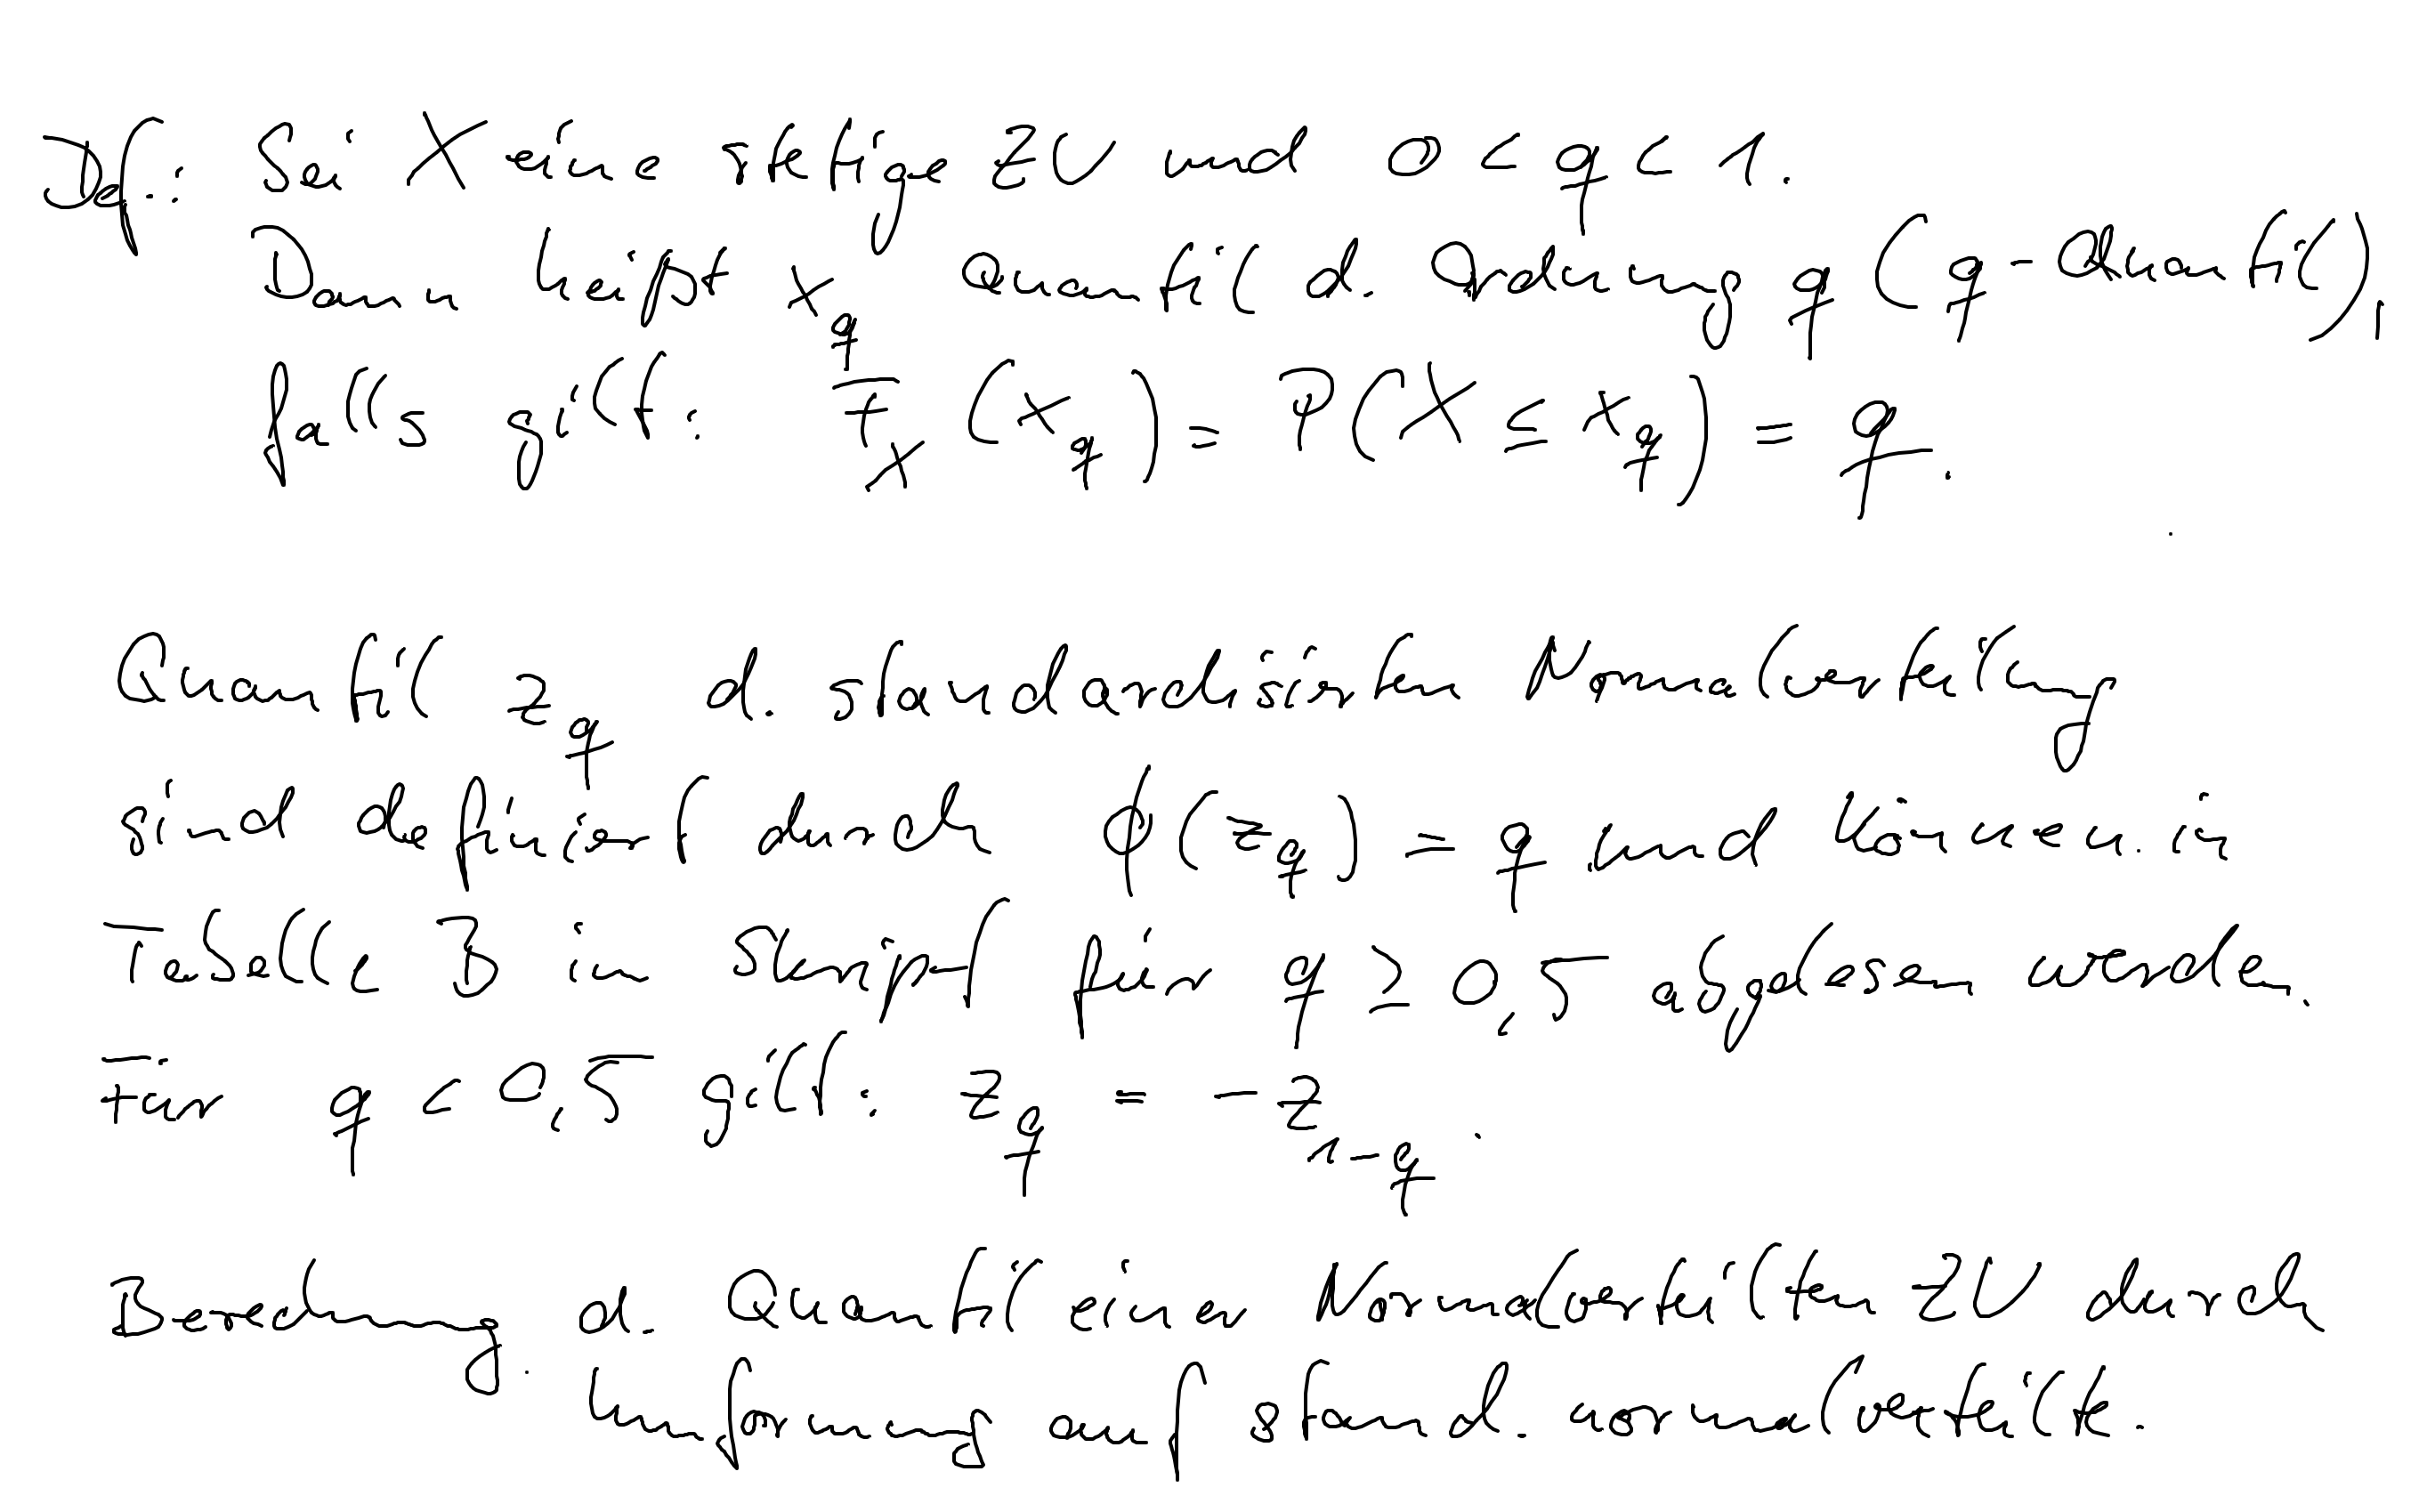 Def.: Sei X eine stetige ZV und 0 < q < 1.
Dann heißt x_q Quantil d. Ordnung q (q-Quantil),
falls gilt: F_X (x_q) = P(X ≤ x_q) = q.
Quantil z_q d. standardisierten Normalverteilung
sind definiert durch ϕ(z_q) = q und können in
Tabelle B in Skript für q ≥ 0,5 abgelesen werden.
Für q < 0,5 gilt: z_q = -z_{1-q}.
Berechnung. d. Quantil einer Normalverteilten ZV durch
Umformung auf stand. normalverteilte.